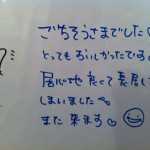 ごちそうさまでした
とってもおいしかったです
居心地良くて長居して
しまいました
また来ます